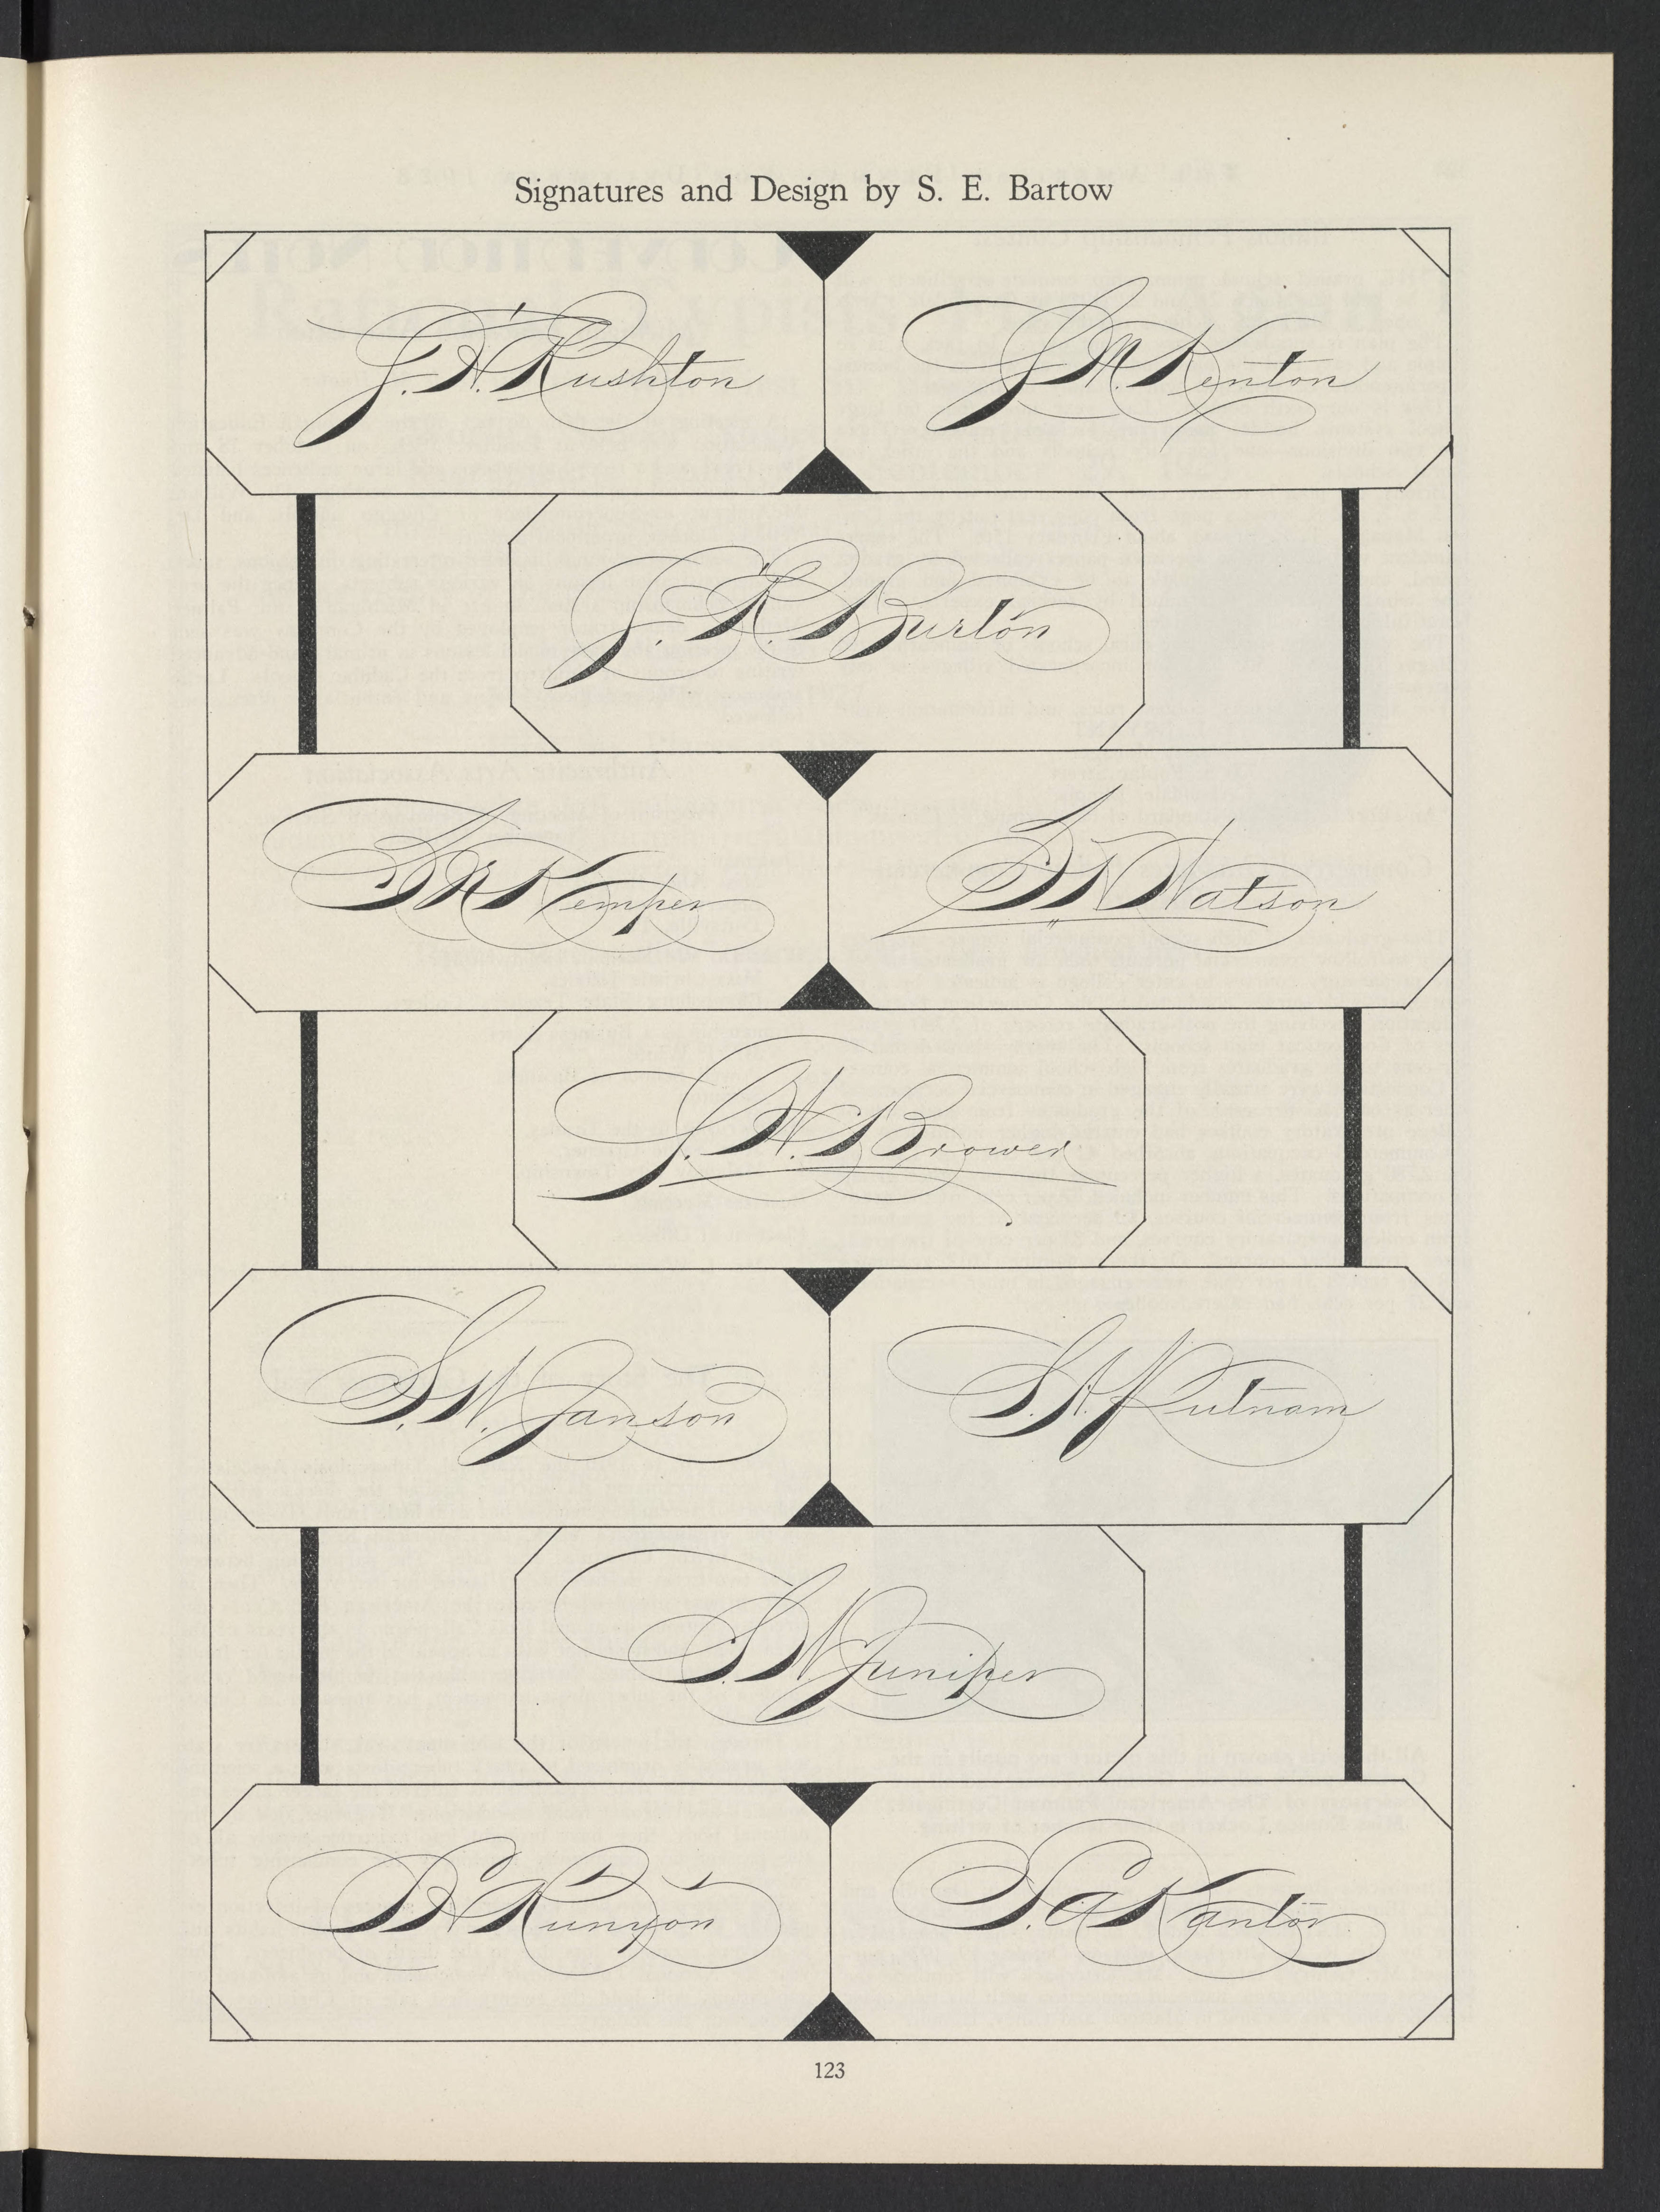 Signatures and Design by S. E. Bartow
J. H. Rushton
G. M. Kenton
J. R. Burton
S. R. Kemper
S. N. Watson
J. H. Brower
S. W. Janson
S. A. Putnam
S. W. Juniper
S. H. Runyon
S. A. Kantor
123